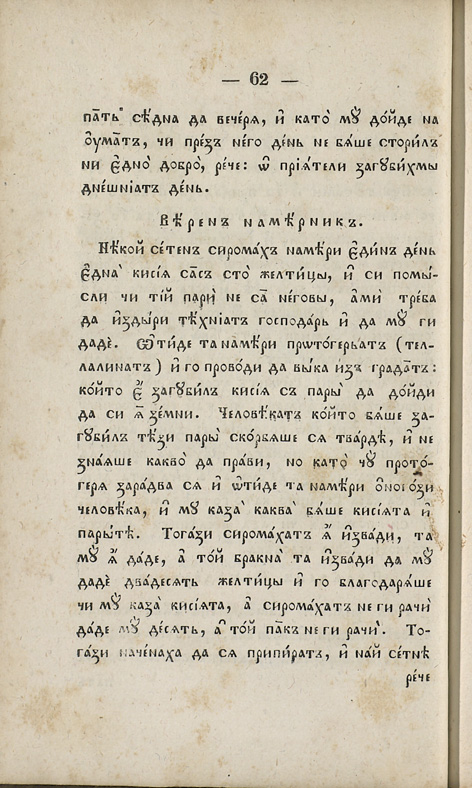 — 62 —
па́тъ сѣ́дна да вече́ря, и҆ като̀ мꙋ̀ до́йде на
ᲂу҆ма́тъ, чи пре́зъ не́го де́нь не бѧ́ше стори́лъ
ни є҆дно̀ добро̀, ре́че: ѡ҆ прїѧ́тели загꙋби́хмы
дне́шнїатъ де́нь.
Вѣ́ренъ намѣ́рникъ.
Нѣ́кой се́тенъ сирома́хъ намѣ́ри є҆ди́нъ де́нь
є҆дна̀ киси́ѧ са́съ сто̀ желти́цы, и҆ си помы́-
сли чи ті́й парѝ не са̀ не́говы, а҆мѝ тре́ба
да и҆зды́ри тѣ́хнїатъ господа́рь и҆ да мꙋ̀ ги
дадѐ. Ѿти́де та намѣ́ри прѡто́герьатъ (тел-
лали́натъ) и҆ го прово́ди да вы́ка изъ града́тъ:
ко́йто є҆̀ загꙋби́лъ киси́ѧ съ пары̀ да до́йди
да си ѧ҆̀ зе́мни. Человѣ́катъ ко́йто бѧ́ше за-
гꙋби́лъ тѣ́зи пары̀ ско́рбѧше сѧ тва́рдѣ, и҆ не
зна́ѧше какво̀ да пра́ви, но като̀ чꙋ̀ прото́-
герѧ зара́два сѧ и҆ ѿти́де та намѣ́ри ѻ҆ного́зи
человѣ́ка, и҆ мꙋ каза̀ каква̀ бѧ́ше киси́ѧта и҆
пары́тѣ. Тога́зи сирома́хатъ ѧ҆̀ и҆зва́ди, та
мꙋ̀ ѧ҆̀ да́де, а҆ то́й бра́кна та и҆зва́ди да мꙋ̀
дадѐ два́десѧть желти́цы и҆ го благодарѧ́ше
чи мꙋ̀ каза̀ киси́ѧта, а҆ сирома́хатъ не ги рачѝ
да́де мꙋ̀ де́сѧть, а҆ то́й па́къ не ги рачѝ. То-
га́зи наче́наха да сѧ припи́ратъ, и҆ на́й се́тнѣ
ре́че